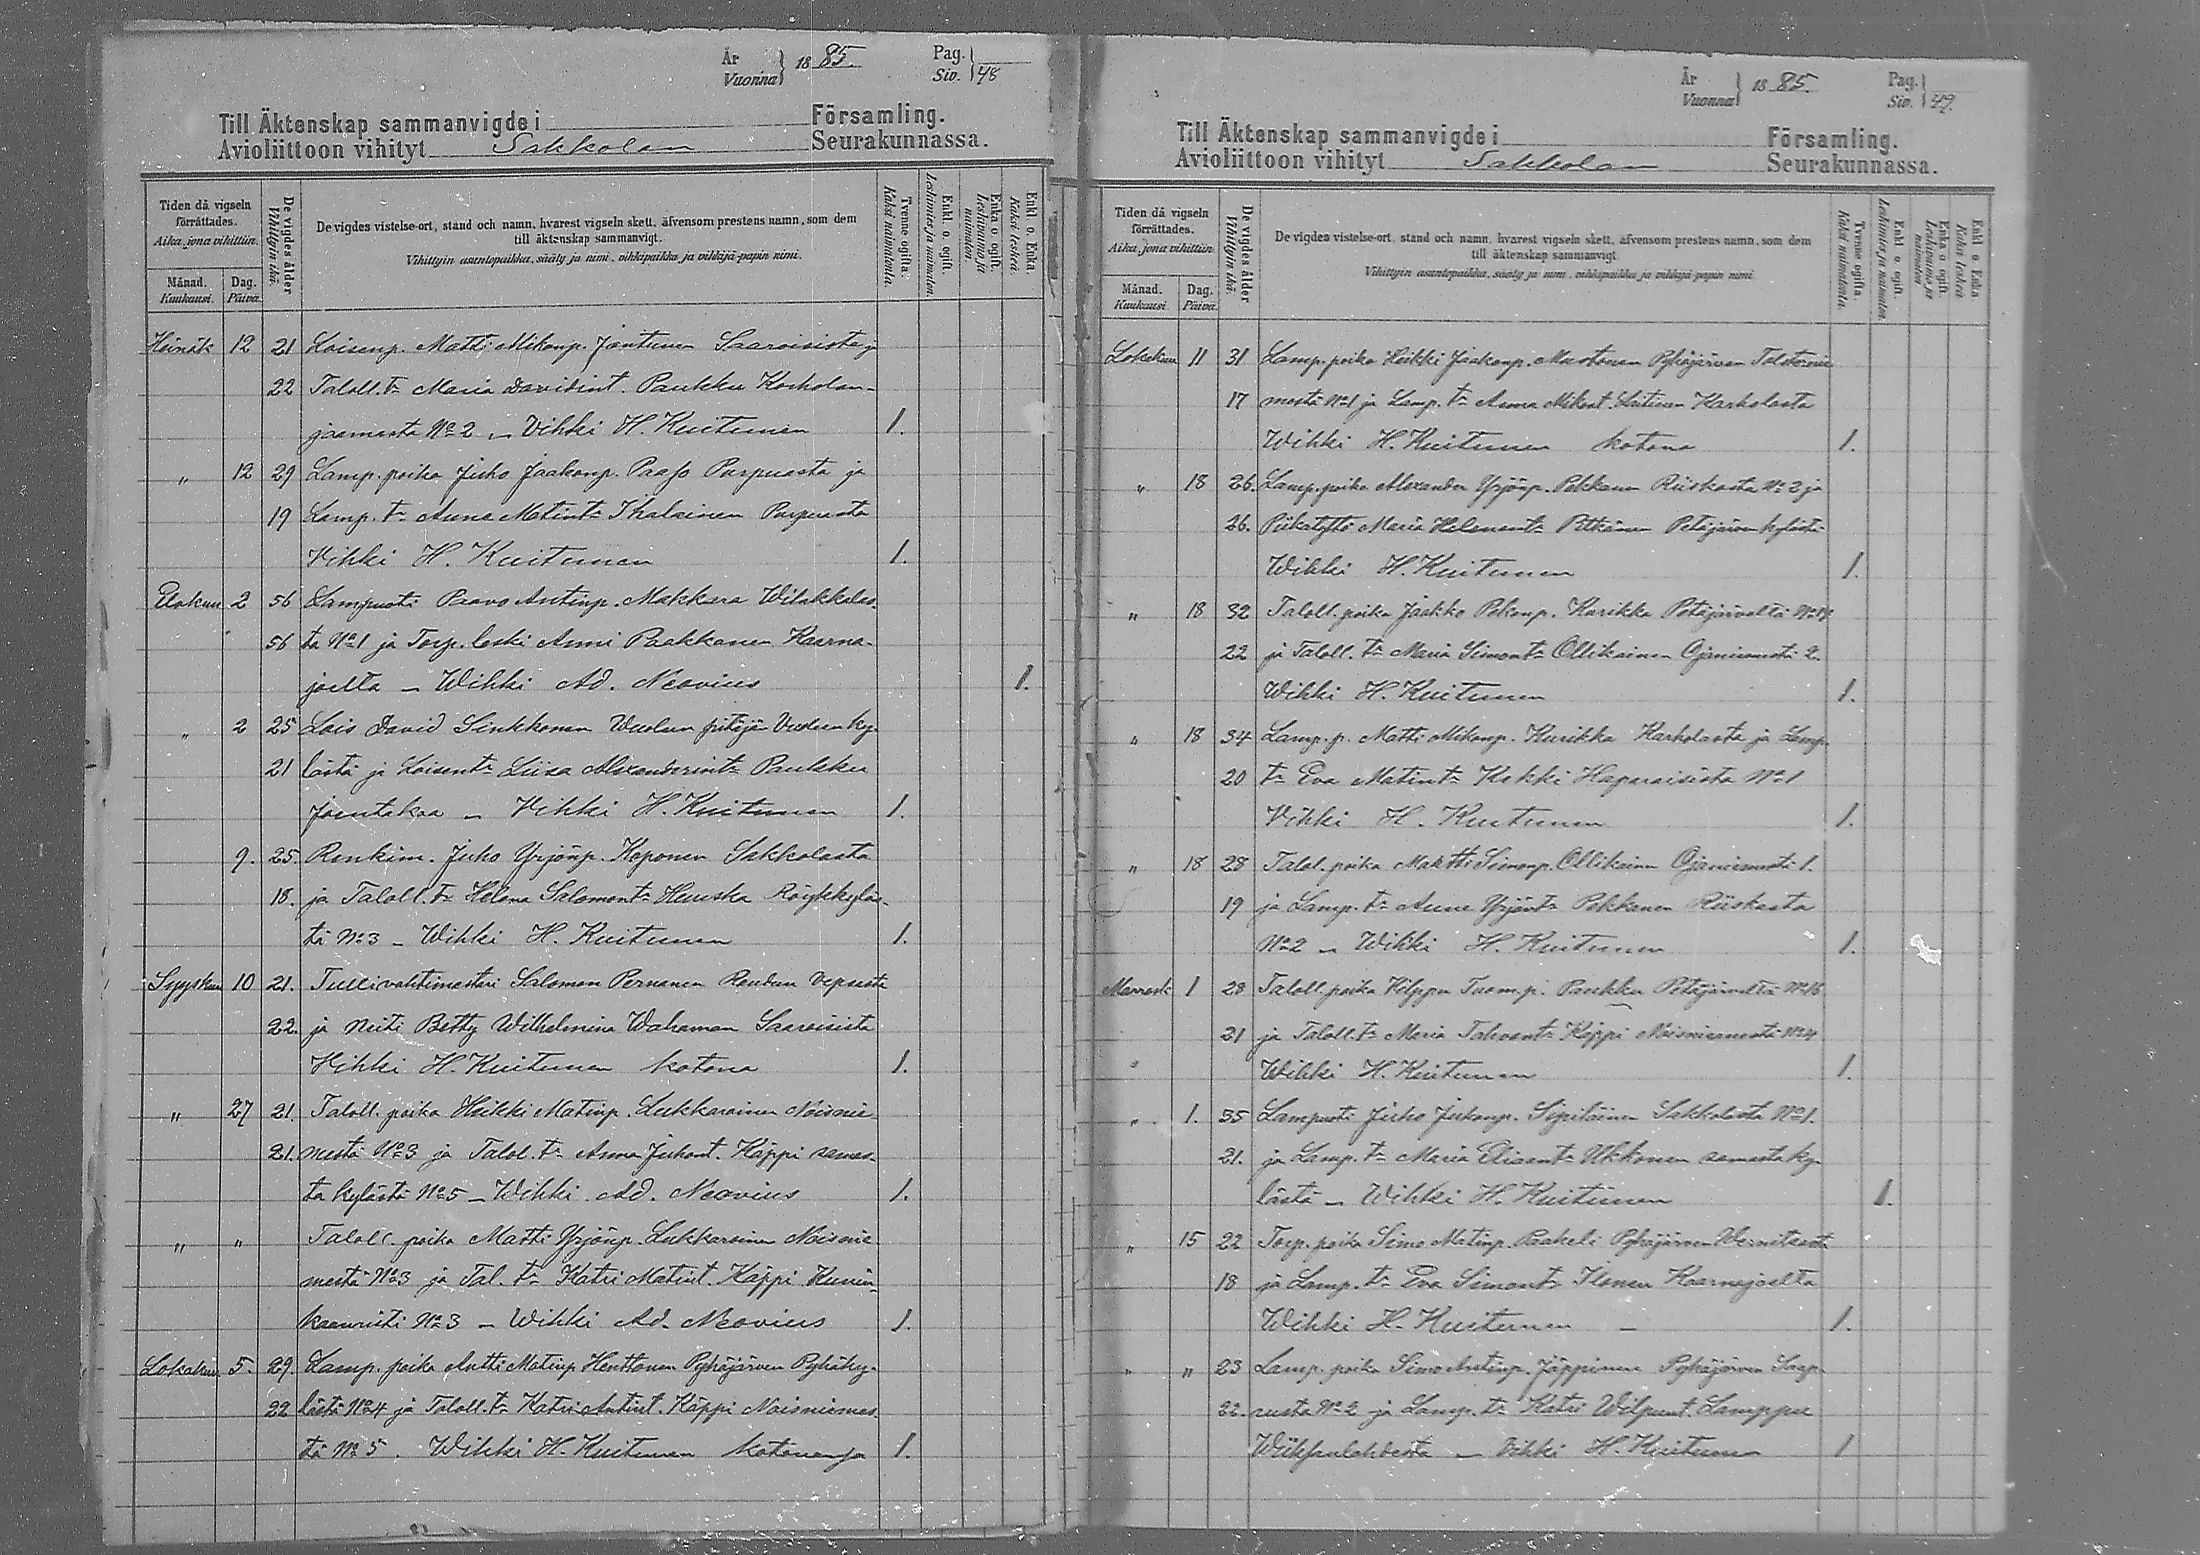 År
Vuonna } 18 85.
Pag.
Siv. } 48
Till Äktenskap sammanvigde i Församling.
Avioliittoon vihityt Sakkolan Seurakunnassa.
Tiden då vigseln förrättades.
Aika, jona vihittiin.
Månad. Kuukausi.
Dag. Päivä.
De vigdes ålder
Vihittyin ikä.
De vigdes vistelse-ort, stand och namn, hvarest vigseln skett, äfvensom prestens namn, som dem
till äktenskap sammanvigt.
Vihittyin asuntopaikka, sääty ja nimi, vihkipaikka ja vihkijä-papin nimi.
Tvenne ogifta.
Kaksi naimatonta.
Enkl. o. ogift.
Leskimies ja naimaton.
Enka o. ogift.
Leskivaimo ja naimaton.
Enkl. o. Enka.
Kaksi leskeä.
Heinäk 12 21 Loisenp. Matti Mikonp. Jäntunen Saaroisista ja
22 Taloll. tr Maria Davidint. Paukku Karholan-
jaamasta No 2 – Vihki H. Kuitunen 1.
" 12 29 Lamp. poika Juho Jaakonp. Paaso Purpuasta ja
19 Lamp. tr Anna Matintr Ihalainen Purpuasta
Vihki H. Kuitunen 1.
Elokuu 2 56 Lampuoti Paavo Antinp. Makkara Wilakkalas-
56 ta No 1 ja Torp. leski Anni Pakkanen Kaarna-
joelta – Wihki Ad. Neovius 1.
" 2 25 Lois David Sinkkonen Wuolen pitäjän Vuolen ky-
21 lästä ja Loisentr Liisa Alexanderintr Paukku
Jaentakaa – Vihki H. Kuitunen 1.
9. 25 Renkim. Juho Yrjönp. Koponen Sakkolasta
18. ja Taloll. tr Helena Salomontr Heuska Röykkyläs-
tä No 3 – Wihki H. Kuitunen 1.
Syyskuu 10 21. Tullivahtimestari Salomon Pernanen Raudun Vepsästä
22. ja neiti Betty Wilhelmina Wahaman Saaroisista
Vihki H. Kuitunen kotona 1.
" 27 21. Taloll. poika Heikki Matinp. Lukkarainen Noisnie-
21. mestä No 3 ja Talol. tr Anna Juhont. Käppi samas-
ta kylästä No 5 – Wihki Ad. Neovius 1.
" " Taloll. poika Matti Yrjönp. Lukkarainen Noisnie
mestä No 3 ja Tal. tr Katri Matint. Käppi
No 3 – Wihki Ad. Neovius 1.
Lokakuu 5. 29. Lamp. poika Antti Matinp Henttonen Pyhäjärven Pyhäky-
22 lästä No 4 ja Taloll. tr Katri Antint. Käppi Noisniemes
tä No 5. Wihki H. Kuitunen kotona 1.
År
Vuonna } 18 85.
Pag.
Siv. } 49.
Till Äktenskap sammanvigde i Församling.
Avioliittoon vihityt Sakkolan Seurakunnassa.
Tiden då vigseln förrättades.
Aika, jona vihittiin.
Månad. Kuukausi.
Dag. Päivä.
De vigdes ålder
Vihittyin ikä.
De vigdes vistelse-ort, stand och namn, hvarest vigseln skett, äfvensom prestens namn, som dem
till äktenskap sammanvigt.
Vihittyin asuntopaikka, sääty ja nimi, vihkipaikka ja vihkijä-papin nimi.
Tvenne ogifta.
Kaksi naimatonta.
Enkl. o. ogift.
Leskimies ja naimaton.
Enka o. ogift.
Leskivaimo ja naimaton.
Enkl. o. Enka.
Kaksi leskeä.
Lokakuu 11 31 Lamp. poika Heikki Jaakonp. Mustonen Pyhäjärven
17 mestä No 1 ja Lamp. tr Anna Mikont. Karholasta
Wihki H. Kuitunen kotona 1.
" 18 26. Lamp. poika Alexander Yrjönp. Pekkanen Riiskasta No 2 ja
26. Piikatyttö Maria Helenantr Pitkänen Petäjärven kylästä
Wihki H. Kuitunen 1.
" 18 32 Taloll. poika Jaakko Pekonp. Kurikka Petäjärveltä No 14
22 ja Taloll. tr Maria Simontr Ollikainen Ojaniemestä 2.
Wihki H. Kuitunen 1.
" 18 34 Lamp. p. Matti Mikonp. Kurikka Karholasta ja Lamp.
20 tr Eva Matintr Kekki Haparaisista No 1
Vihki H. Kuitunen 1.
" 18 28 Talol. poika Matti Simonp. Ollikainen Ojaniemestä 1.
19 ja Lamp. tr Anna Yrjöntr Pekkanen Riiskasta
No 2 – Wihki H. Kuitunen 1.
Marrask 1 28 Taloll. poika Wilppu Tuom.p. Paukku Petäjärveltä No 16
21 ja Taloll. tr Maria Tahvantr Käppi Noisniemestä No 4
" Wihki H. Kuitunen 1.
" 1. 35 Lampuoti Juho Juhonp. Sipiläinen Sakkolasta No 1.
21. ja Lamp. tr Maria Eliantr Ukkonen samasta ky-
lästä – Wihki H. Kuitunen 1.
" 15 22 Torp. poika Simo Matinp. Paakeli Pyhäjärven Wernitsasta
18 ja Lamp. tr Eva Simontr Ilonen Kaarnajoelta
Wihki H. Kuitunen – 1.
" " 23 Lamp. poika Simo Antinp. Jäppinen Pyhäjärven Saap-
22. rusta No 2 ja Lamp. tr Katri Wilpunt. Lamppu
Wiiksanlahdesta – Vihki H. Kuitunen 1